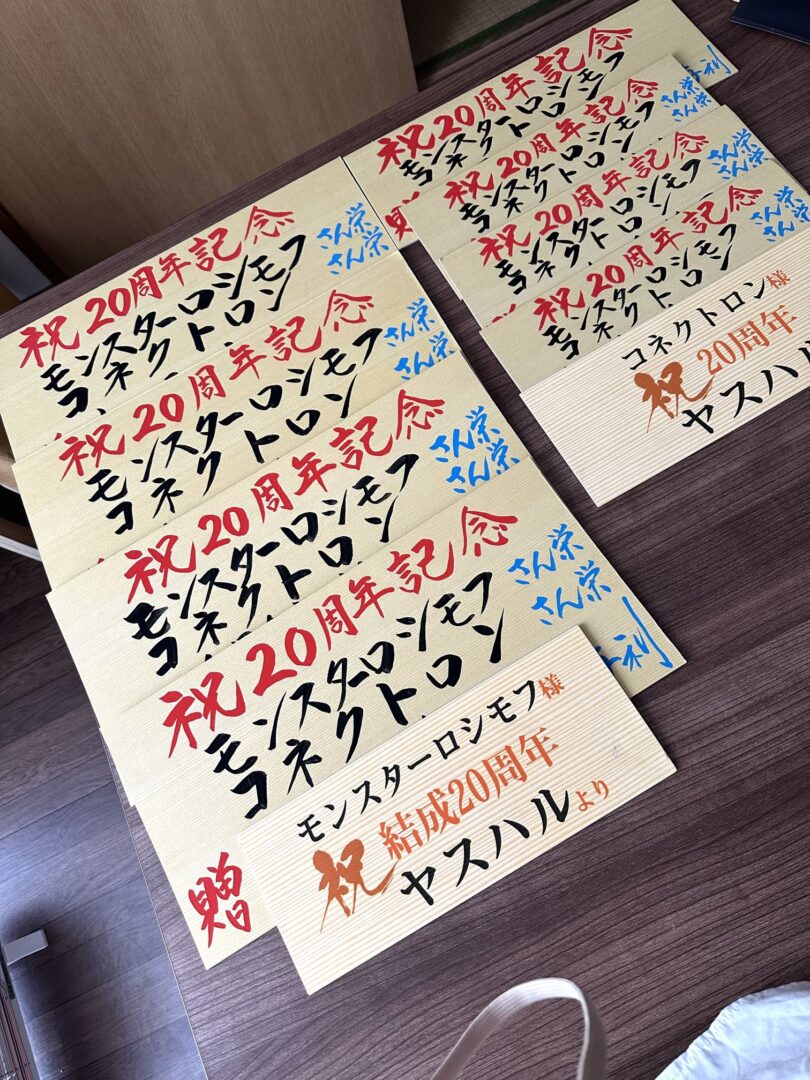 祝20周年記念
モンスターロシモフ さん栄
コネクトロン さん栄
祝20周年記念
モンスターロシモフ さん栄
コネクトロン さん栄
祝20周年記念
モンスターロシモフ さん栄
コネクトロン さん栄
祝20周年記念
モンスターロシモフ さん栄
コネクトロン さん栄
贈
利
モンスターロシモフ様
祝 結成20周年
ヤスハルより
祝20周年記念
モンスターロシモフ
コネクトロン
利
祝20周年記念
モンスターロシモフ さん栄
コネクトロン さん栄
祝20周年記念
モンスターロシモフ さん栄
コネクトロン さん栄
祝20周年記念
モンスターロシモフ さん栄
コネクトロン さん栄
コネクトロン様
祝 20周年
ヤスハル